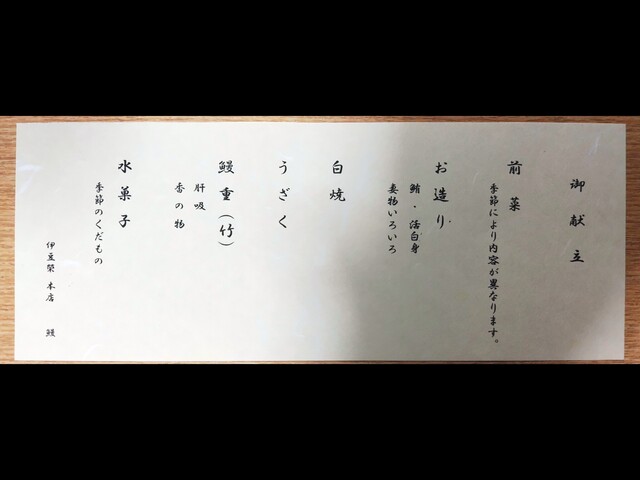 御献立
前菜
季節により内容が異なります。
お造り
鮪・活白身
妻物いろいろ
白焼
うざく
鰻重(竹)
肝吸
香の物
水菓子
季節のくだもの
伊豆榮 本店 鰻